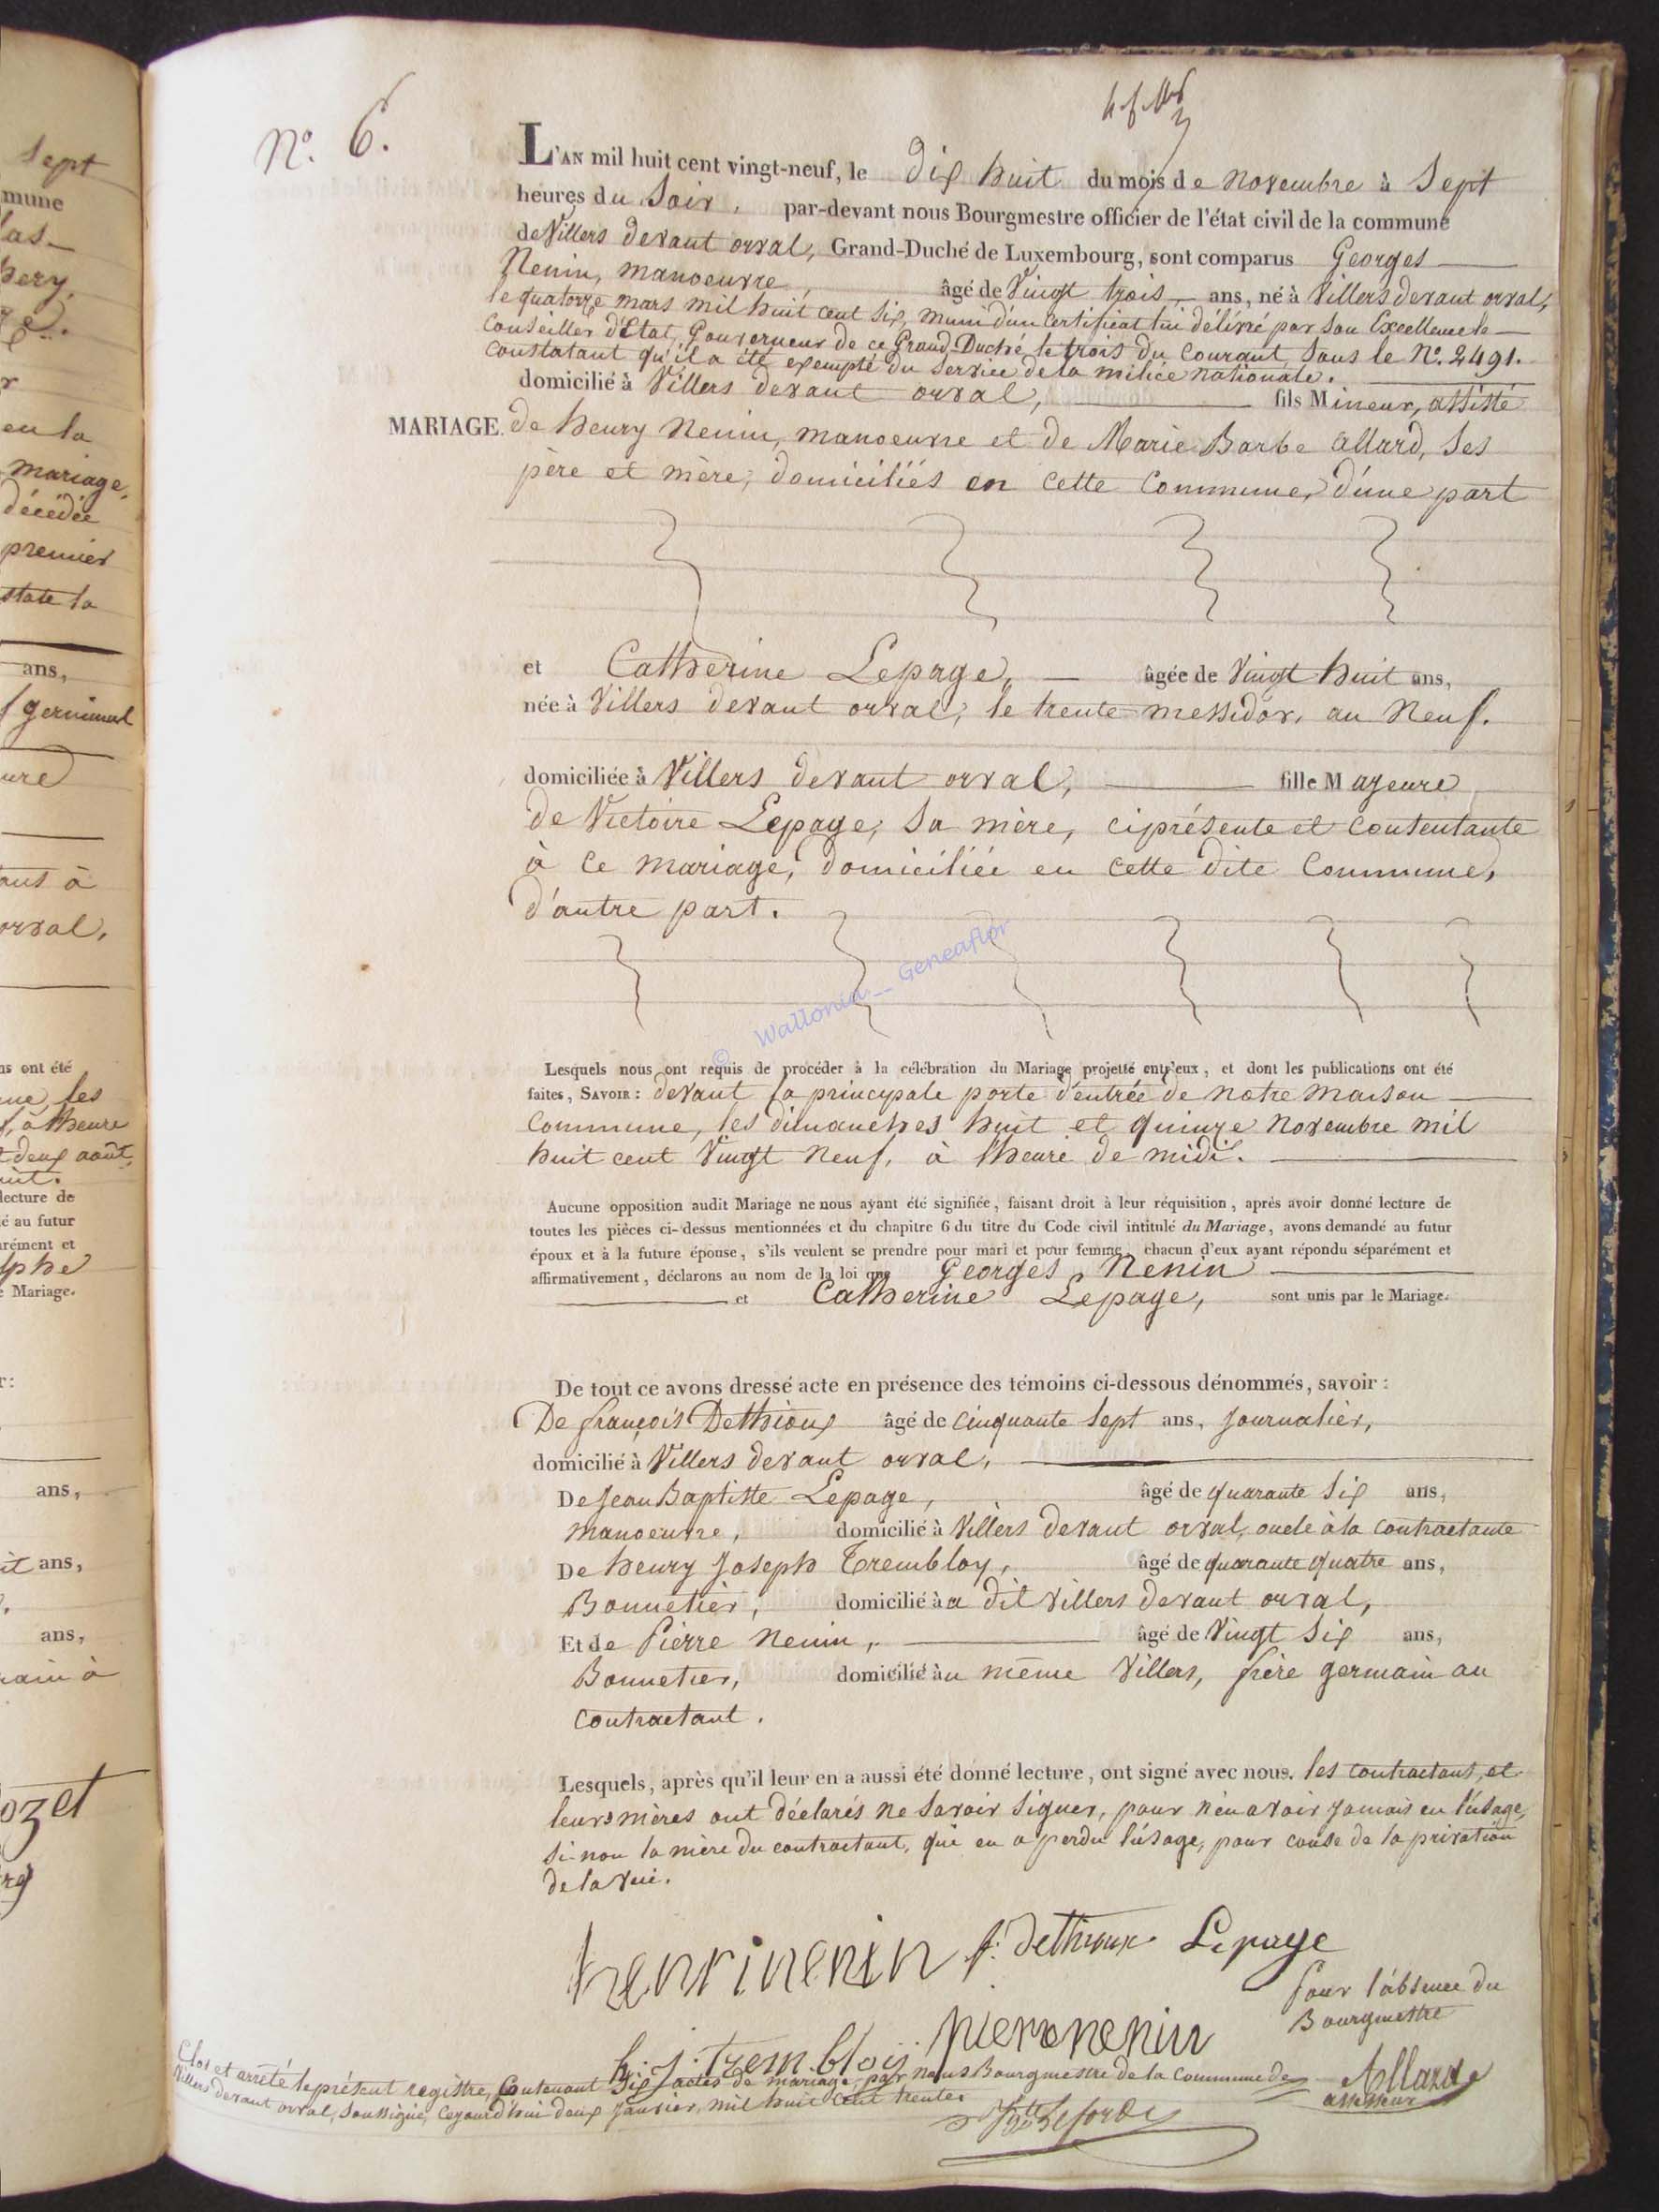 Sept
mune
las
hery,
r
en la
mariage,
décédée
premier
state la
ans,
germinal
ure
ans à
orval,
ns ont été
me, les
à l'heure
deux août,
lecture de
é au futur
rément et
lphe
e Mariage.
r:
ans,
it ans,
ans,
rain à
ozet
N.° 6.
L'AN mil huit cent vingt-neuf, le dix huit du mois de novembre à Sept
heures du Soir, par-devant nous Bourgmestre officier de l'état civil de la commune
de Villers devant orval, Grand-Duché de Luxembourg, sont comparus Georges
Nenin, manoeuvre, âgé de Vingt trois ans, né à Villers devant orval,
le quatorze mars mil huit cent six, muni d'un certificat lui délivré par Son Excellence le
Conseiller d'Etat, Gouverneur de ce Grand-Duché, le trois du courant, sous le N.° 2491.
constatant qu'il a été exempté du service de la milice nationale.
domicilié à Villers devant orval, fils Mineur, assisté
MARIAGE. de henry Nenin, manoeuvre et de Marie Barbe Allard, ses
père et mère, domiciliés en cette commune, d'une part
et Catherine Lepage, âgée de Vingt huit ans,
née à Villers devant orval, le trente messidor, an Neuf.
domiciliée à Villers devant orval, fille Majeure
de Victoire Lepage, sa mère, ciprésente et consentante
à ce mariage, domiciliée en cette dite Commune,
d'autre part.
© Wallonia__Geneaflor
Lesquels nous ont requis de procéder à la célébration du Mariage projetté entr'eux, et dont les publications ont été
faites, SAVOIR: devant la principale porte d'entrée de notre maison
Commune, les dimanches huit et quinze novembre mil
huit cent Vingt neuf, à l'heure de midi.
Aucune opposition audit Mariage ne nous ayant été signifiée, faisant droit à leur réquisition, après avoir donné lecture de
toutes les pièces ci-dessus mentionnées et du chapitre 6 du titre du Code civil intitulé du Mariage, avons demandé au futur
époux et à la future épouse, s'ils veulent se prendre pour mari et pour femme, chacun d'eux ayant répondu séparément et
affirmativement, déclarons au nom de la loi que Georges Nenin
et Catherine Lepage, sont unis par le Mariage.
De tout ce avons dressé acte en présence des témoins ci-dessous dénommés, savoir:
De françois Dethioux âgé de cinquante Sept ans, Journalier,
domicilié à Villers devant orval,
De Jean Baptiste Lepage, âgé de quarante Six ans,
manoeuvre, domicilié à Villers devant orval, oncle à la contractante
De henry Joseph Trembloy, âgé de quarante quatre ans,
Bonnetier, domicilié à a dit Villers devant orval,
Et de Pierre Nenin, âgé de Vingt Six ans,
Bonnetier, domicilié àu même Villers, frère germain au
contractant.
Lesquels, après qu'il leur en a aussi été donné lecture, ont signé avec nous. les contractans, et
leurs mères ont déclarés ne savoir signer, pour n'en avoir jamais eu l'usage,
si-non la mère du contractant, qui en a perdu l'usage, pour cause de la privation
de la vue.
henrinenin f. Dethioux Lepage
pour l'absence du
Bourgmestre
pierre nenin
h. j. tremblois
Allard
assesseur
Clos et arrêté le présent registre, Contenant Six actes de mariage, par nous Bourgmestre de la Commune de
Villers devant orval, soussigné, cejourd'hui deux janvier, mil huit cent trente.